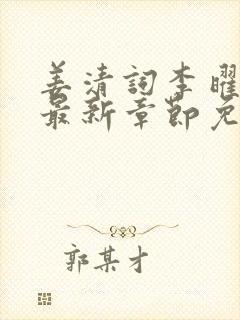 姜清詞李曜
最新章節免
郭某才